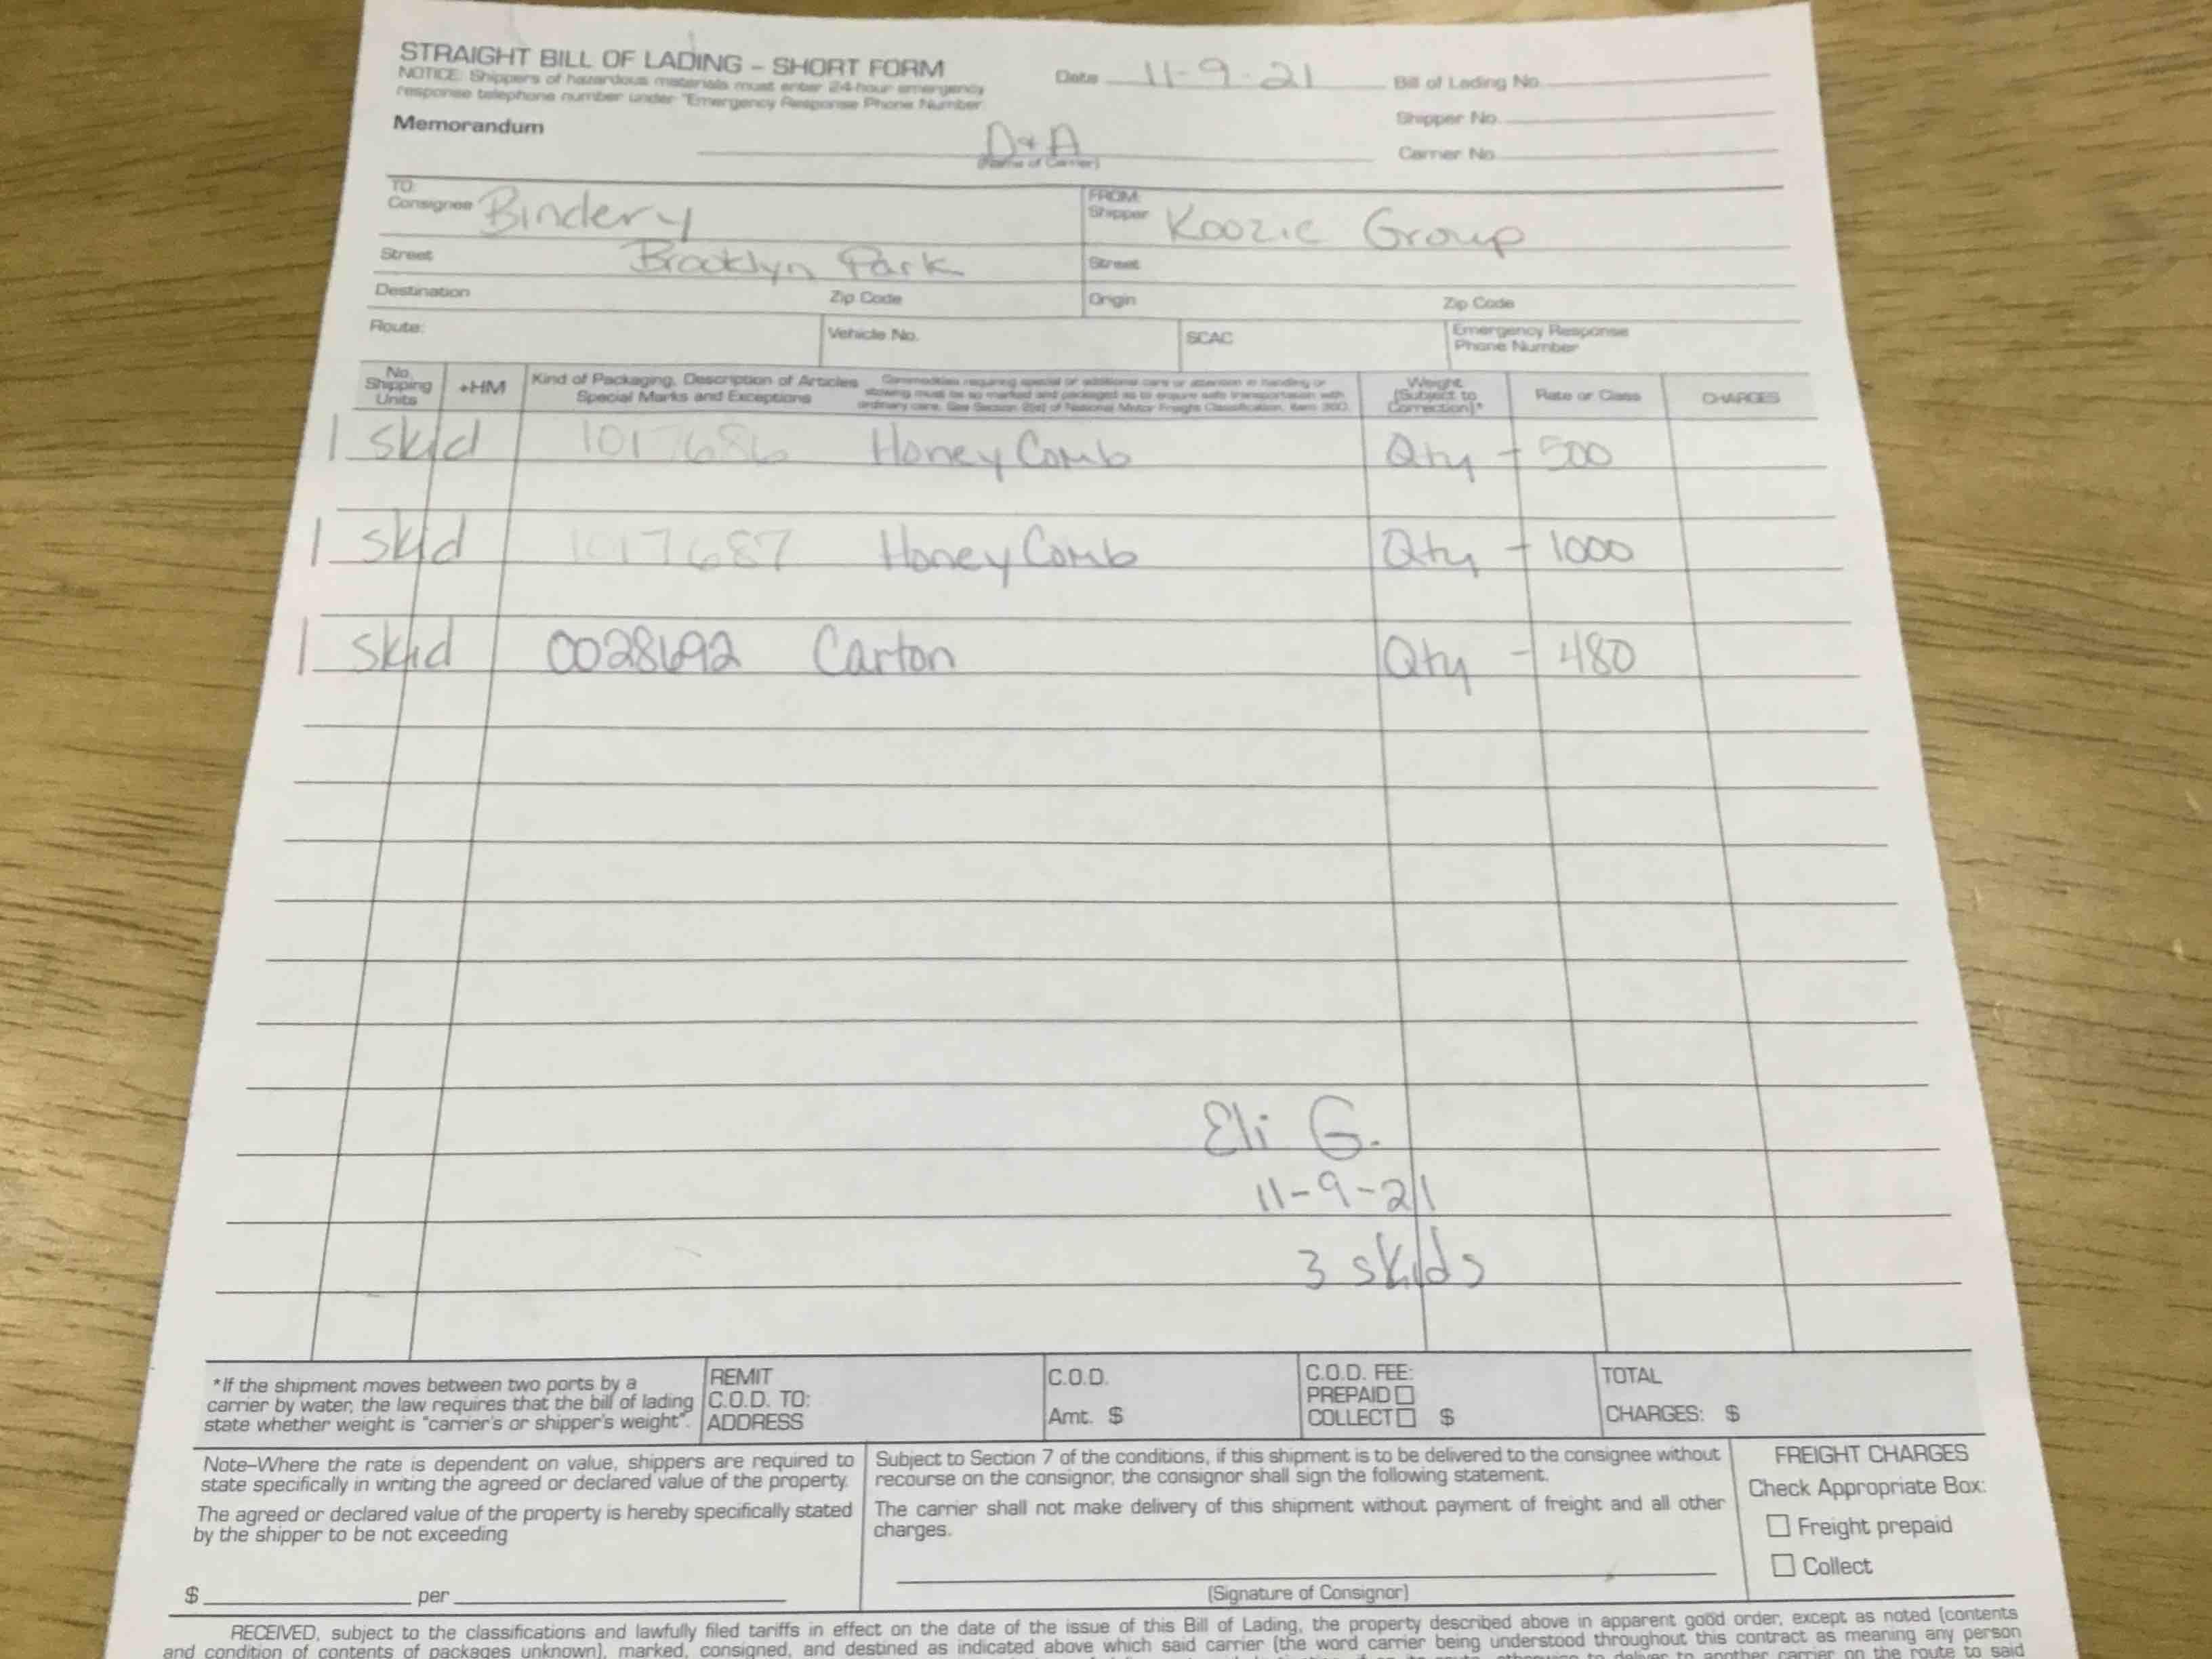 STRAIGHT BILL OF LADING – SHORT FORM
NOTICE: Shippers of hazardous materials must enter 24-hour emergency
response telephone number under "Emergency Response Phone Number.
Memorandum
Date 11-9-21
Bill of Lading No.
Shipper No.
Carrier No.
D & A
(Name of Carrier)
TO:
Consignee Bindery
Street Brooklyn Park
Destination Zip Code
FROM:
Shipper Koozie Group
Street
Origin Zip Code
Route: Vehicle No. SCAC Emergency Response
Phone Number
No.
Shipping
Units
+HM
Kind of Packaging, Description of Articles
Special Marks and Exceptions
Commodities requiring special or additional care or attention in handling or
stowing must be so marked and packaged as to ensure safe transportation with
ordinary care. See Section 2(e) of National Motor Freight Classification, Item 360.
Weight
(Subject to
Correction)*
Rate or Class
CHARGES
1 skid 1017686 Honey Comb Qty - 500
1 skid 1017687 Honey Comb Qty - 1000
1 skid 0028692 Carton Qty - 480
Eli G.
11-9-21
3 skids
*If the shipment moves between two ports by a
carrier by water, the law requires that the bill of lading
state whether weight is "carrier's or shipper's weight".
REMIT
C.O.D. TO:
ADDRESS
C.O.D.
Amt. $
C.O.D. FEE:
PREPAID
COLLECT $
TOTAL
CHARGES: $
Note–Where the rate is dependent on value, shippers are required to
state specifically in writing the agreed or declared value of the property.
The agreed or declared value of the property is hereby specifically stated
by the shipper to be not exceeding
$ per
Subject to Section 7 of the conditions, if this shipment is to be delivered to the consignee without
recourse on the consignor, the consignor shall sign the following statement.
The carrier shall not make delivery of this shipment without payment of freight and all other
charges.
(Signature of Consignor)
FREIGHT CHARGES
Check Appropriate Box:
Freight prepaid
Collect
RECEIVED, subject to the classifications and lawfully filed tariffs in effect on the date of the issue of this Bill of Lading, the property described above in apparent good order, except as noted (contents
and condition of contents of packages unknown), marked, consigned, and destined as indicated above which said carrier (the word carrier being understood throughout this contract as meaning any person
to deliver to another carrier on the route to said